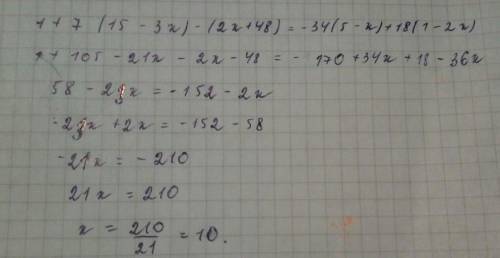 1 + 7 (15 - 3x) - (2x + 48) = -34(5 - x) + 18(1 - 2x)
1 + 105 - 21x - 2x - 48 = - 170 + 34x + 18 - 36x
58 - 23x = -152 - 2x
-23x + 2x = -152 - 58
-21x = -210
21x = 210
x = 210/21 = 10.